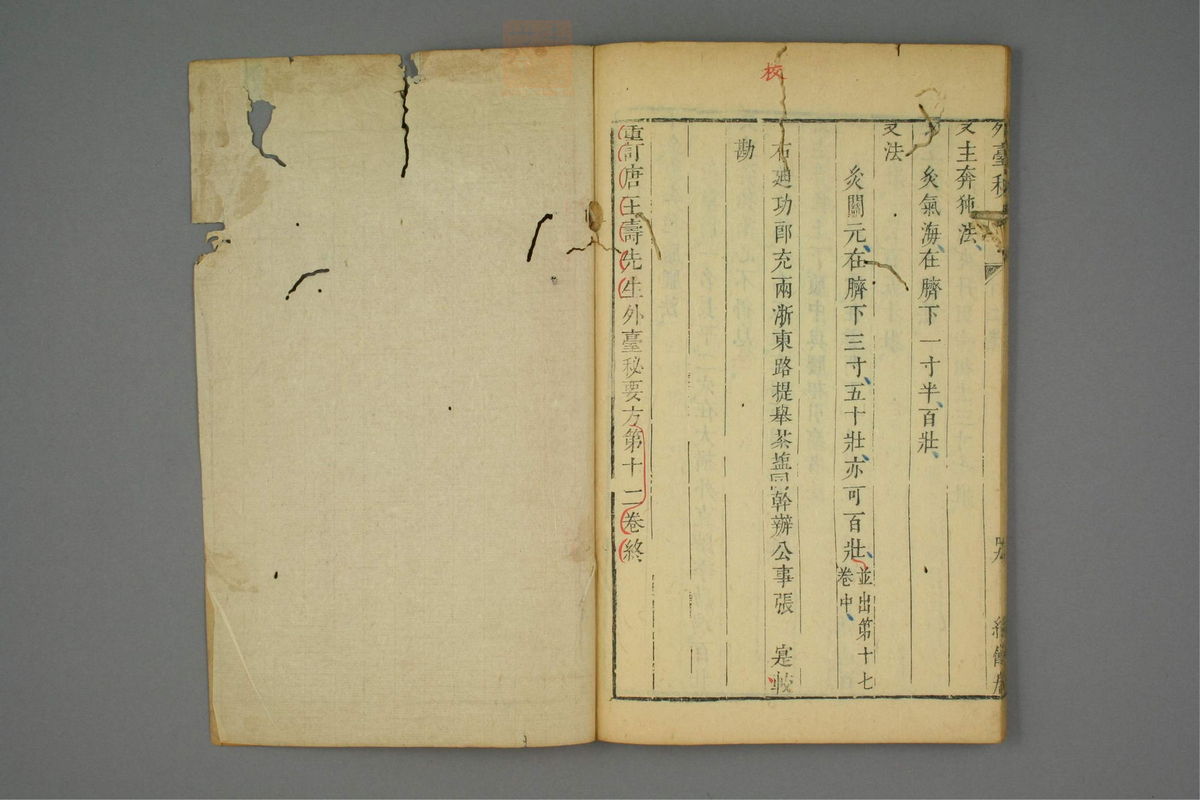 校
外臺秘
又主奔㹠法、
灸氣海、在臍下一寸半、百壯、
又法
灸關元、在臍下三寸、五十壯、亦可百壯、並出第十七卷中、
右迪功郎充兩浙東路提舉茶鹽司幹辦公事張 寔 校
勘
重訂唐王燾先生外臺秘要方第十二卷終